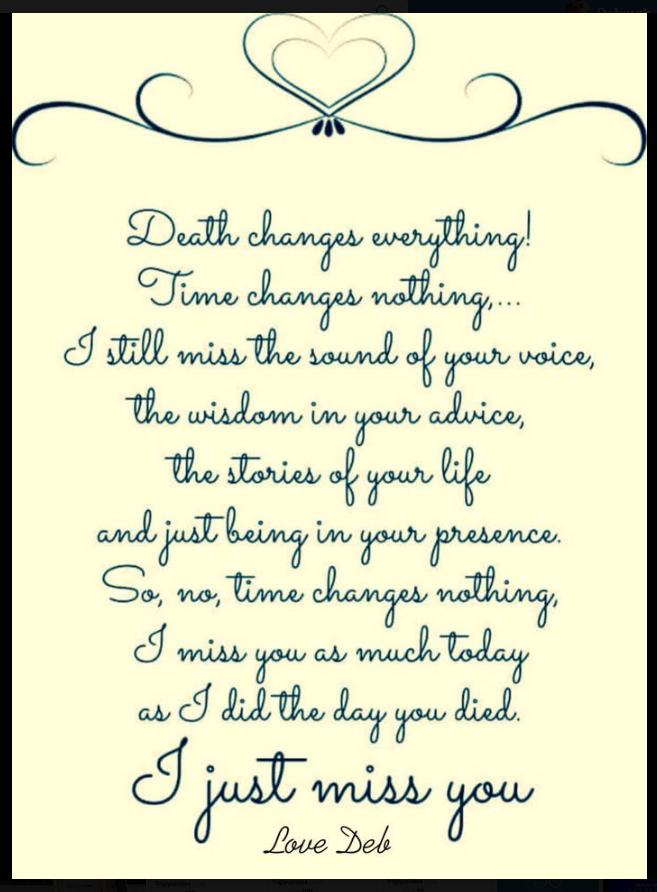 Death changes everything!
Time changes nothing,...
I still miss the sound of your voice,
the wisdom in your advice,
the stories of your life
and just being in your presence.
So, no, time changes nothing,
I miss you as much today
as I did the day you died.
I just miss you
Love Deb